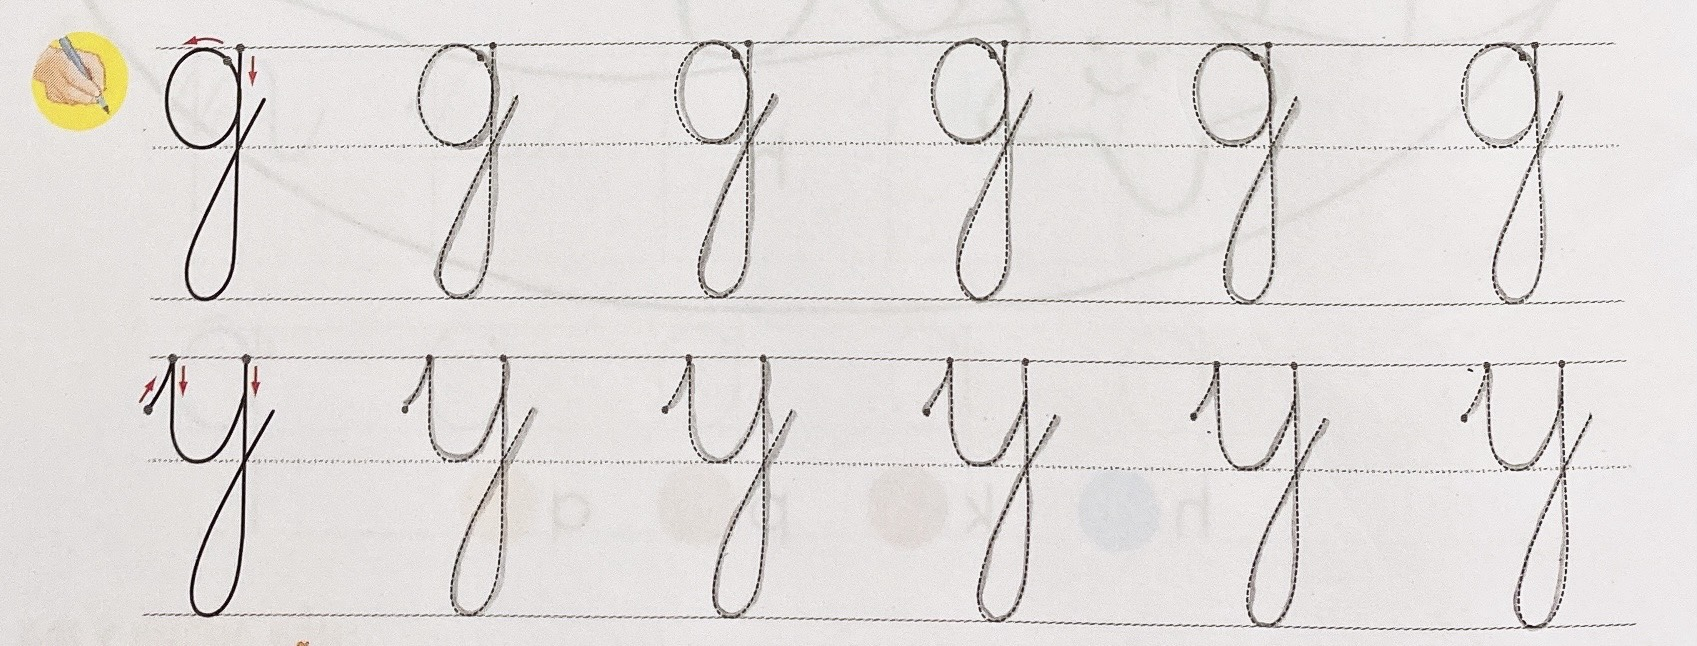 g g g g g g
y y y y y y